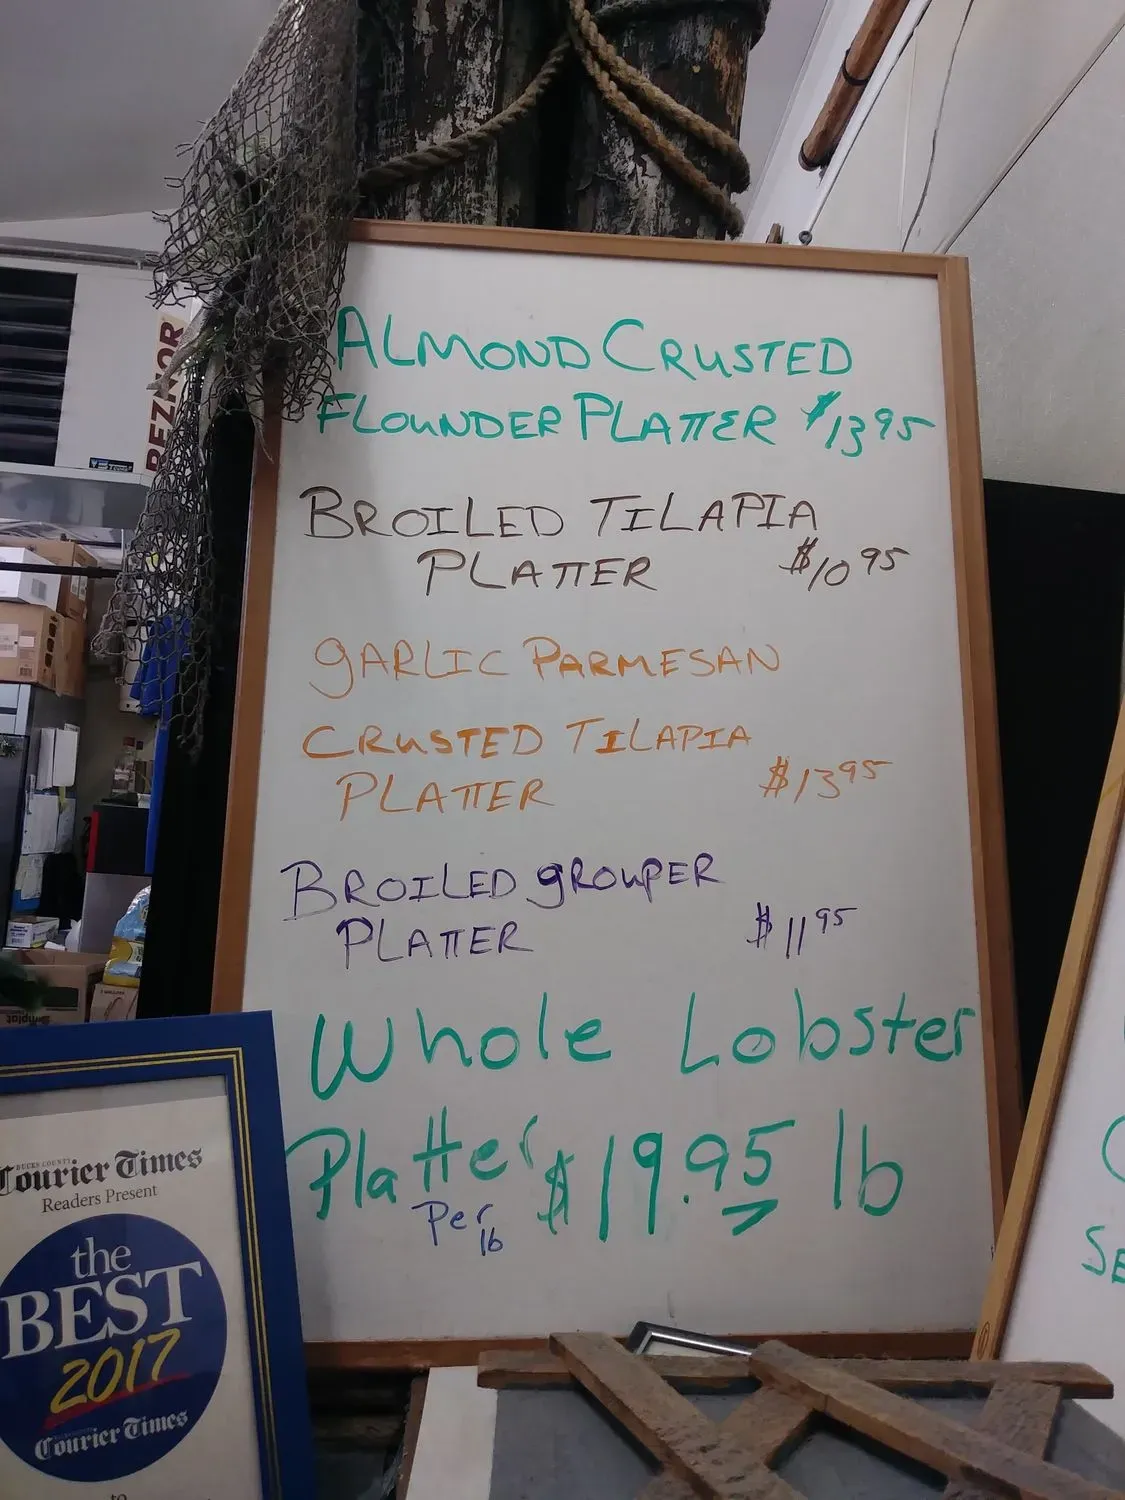 ALMOND CRUSTED
FLOUNDER PLATTER $13.95
BROILED TILAPIA
PLATTER $10 95
GARLIC PARMESAN
CRUSTED TILAPIA
PLATTER $13 95
BROILED GROUPER
PLATTER $11 95
Whole Lobster
Platter $19.95 lb
Per lb
REZNOR
BUCKS COUNTY
Courier Times
Readers Present
the
BEST
2017
Courier Times
to
SE
Simplot